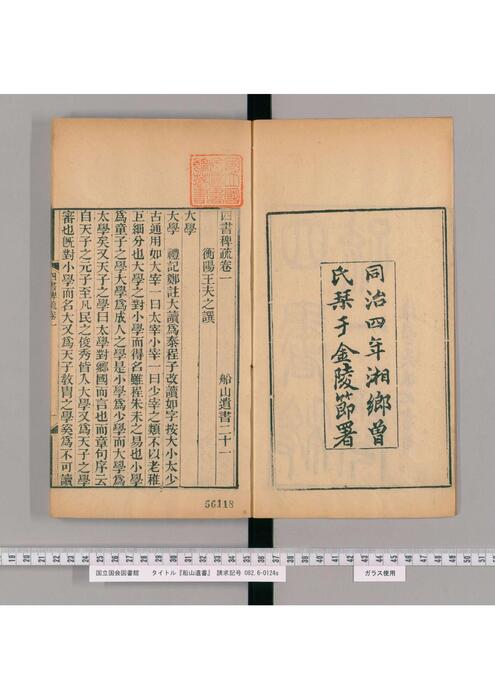 同治四年湘鄉曾
氏栞于金陵節署
四書稗疏卷一
船山遺書二十一
衡陽王夫之譔
大學
大學 禮記鄭註大讀爲泰程子改讀如字按大小太少
古通用如大宰一曰太宰小宰一曰少宰之類不以老稚
巨細分也大學之對小學而得名雖程朱未之易也小學
爲童子之學大學爲成人之學是小學爲少學而大學爲
太學矣又天子之學曰太學對郷國而言也而章句序云
自天子之元子至凡民之俊秀皆入大學又爲天子之學
審也旣對小學而名大又爲天子敎冑之學奚爲不可讀
四書稗疏卷一
一
56118
17 18 19 20 21 22 23 24 25 26 27 28 29 30 31 32 33 34 35 36 37 38 39 40 41 42 43 44 45 46 47 48 49 50 51 52 53 54
国立国会図書館 タイトル『船山遺書』 請求記号 082.6-0124s
ガラス使用